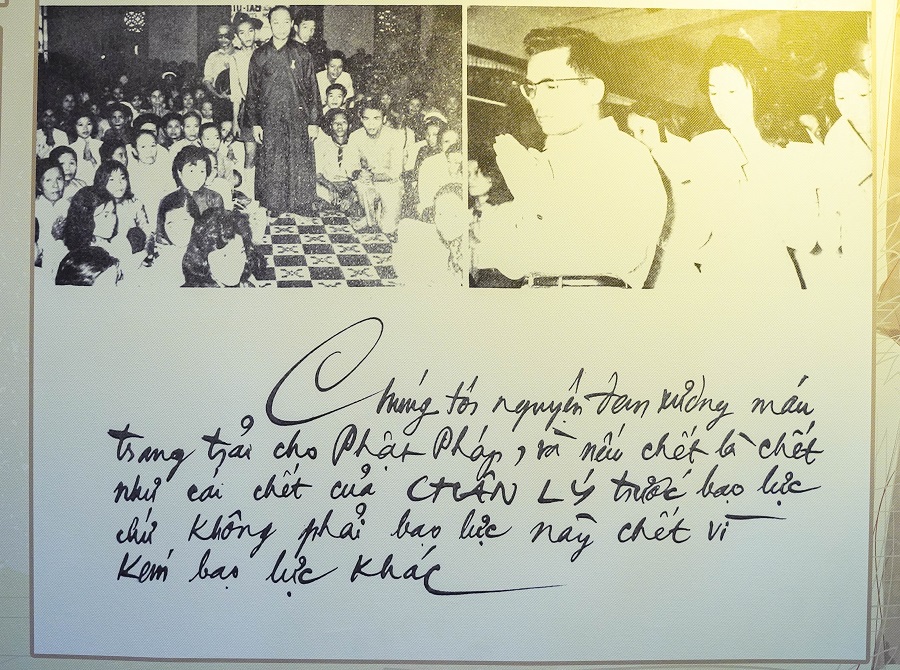 TU-TAO
Chúng tôi nguyện đem xương máu
trang trải cho Phật Pháp, và nếu chết là chết
như cái chết của CHÂN LÝ trước bạo lực
chứ không phải bạo lực này chết vì
kém bạo lực khác